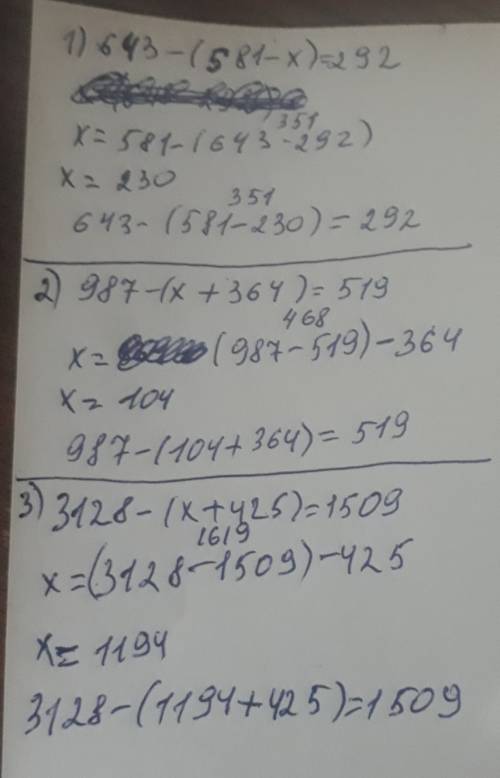 1) 643-(581-x)=292
351
x=581-(643-292)
x=230
351
643-(581-230)=292
2) 987-(x+364)=519
468
x=(987-519)-364
x=104
987-(104+364)=519
3) 3128-(x+425)=1509
1619
x=(3128-1509)-425
x=1194
3128-(1194+425)=1509